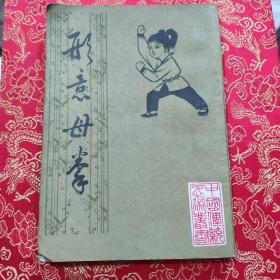 形意母拳
中国传统
武术丛书